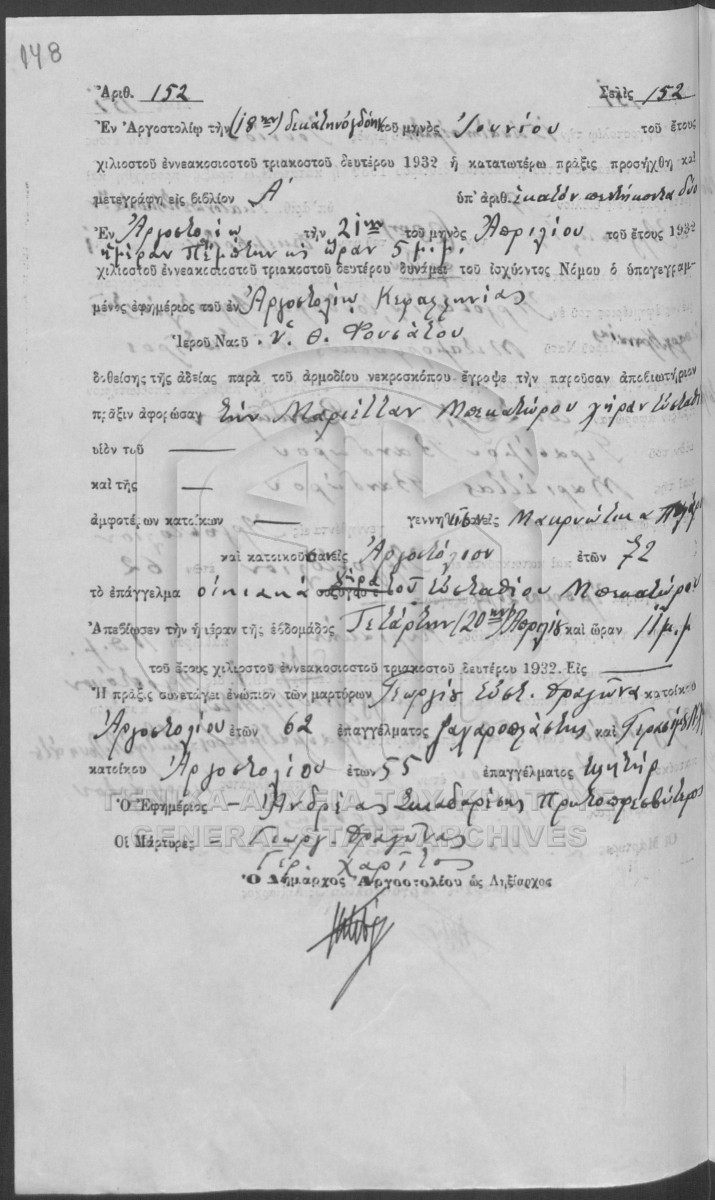 148
Ἀριθ. 152 Σελὶς 152
Ἐν Ἀργοστολίῳ τὴν (18ην) δεκάτην ὀγδόην τοῦ μηνὸς Ἰουνίου τοῦ ἔτους
χιλιοστοῦ ἐννεακοσιοστοῦ τριακοστοῦ δευτέρου 1932 ἡ κατωτέρω πρᾶξις προσήχθη καὶ
μετεγράφη εἰς βιβλίον Α' ὑπ' ἀριθ. ἑκατὸν πεντήκοντα δύο
Ἐν Ἀργοστολίῳ τὴν 21ην τοῦ μηνὸς Ἀπριλίου τοῦ ἔτους 1932
ἡμέραν Πέμπτην καὶ ὥραν 5 μ.μ.
χιλιοστοῦ ἐννεακοσιοστοῦ τριακοστοῦ δευτέρου δυνάμει τοῦ ἰσχύοντος Νόμου ὁ ὑπογεγραμ-
μένος ἐφημέριος τοῦ ἐν Ἀργοστολίῳ Κεφαλληνίας
Ἱεροῦ Ναοῦ Θ. Φουσάτου
δοθείσης τῆς ἀδείας παρὰ τοῦ ἁρμοδίου νεκροσκόπου ἔγραψε τὴν παροῦσαν ἀποβιωτήριον
πρᾶξιν ἀφορῶσαν τὴν Μαριέτταν Μπεκατώρου χήραν Εὐσταθί
υἱὸν τοῦ —
καὶ τῆς —
ἀμφοτέρων κατοίκων — γεννηθεῖσαν εἰς Μακρυώτικα
καὶ κατοικοῦσαν εἰς Ἀργοστόλιον ἐτῶν 72
τὸ ἐπάγγελμα οἰκιακὰ χήρα τοῦ Εὐσταθίου Μπεκατώρου
Ἀπεβίωσεν τὴν ἡμέραν τῆς ἑβδομάδος Τετάρτην (20ην) Ἀπριλίου καὶ ὥραν 11 μ.μ
τοῦ ἔτους χιλιοστοῦ ἐννεακοσιοστοῦ τριακοστοῦ δευτέρου 1932. Εἰς —
Ἡ πρᾶξις συνετάγει ἐνώπιον τῶν μαρτύρων Γεωργίου Εὐστ. Δραγῶνα κατοίκου
Ἀργοστολίου ἐτῶν 62 ἐπαγγέλματος ζαχαροπλάστης καὶ Γερασίμου
κατοίκου Ἀργοστολίου ἐτῶν 55 ἐπαγγέλματος κλητήρ
Ὁ Ἐφημέριος — Ἀνδρέας Σκιαδαρέσης Πρωτοπρεσβύτερος
ΓΕΝΙΚΑ ΑΡΧΕΙΑ ΤΟΥ ΚΡΑΤΟΥΣ
GENERAL STATE ARCHIVES
Οἱ Μάρτυρες — Γεώργ. Δραγῶνας
Γερ. Χαρίτος
Ὁ Δήμαρχος Ἀργοστολίου ὡς Ληξίαρχος